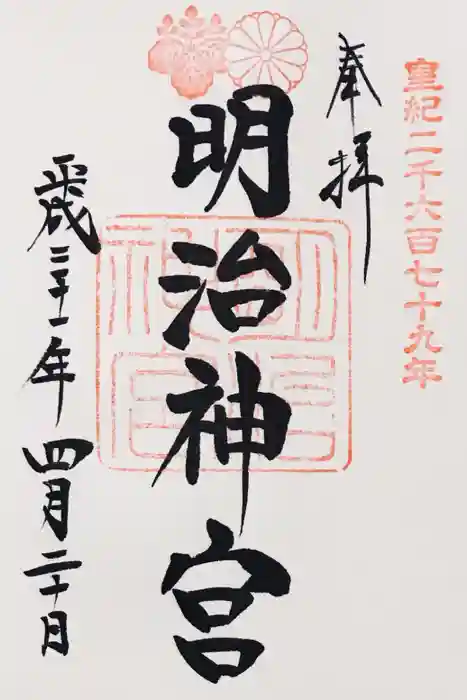 皇紀二千六百七十九年
奉拝
明治神宮
平成三十一年四月二十日